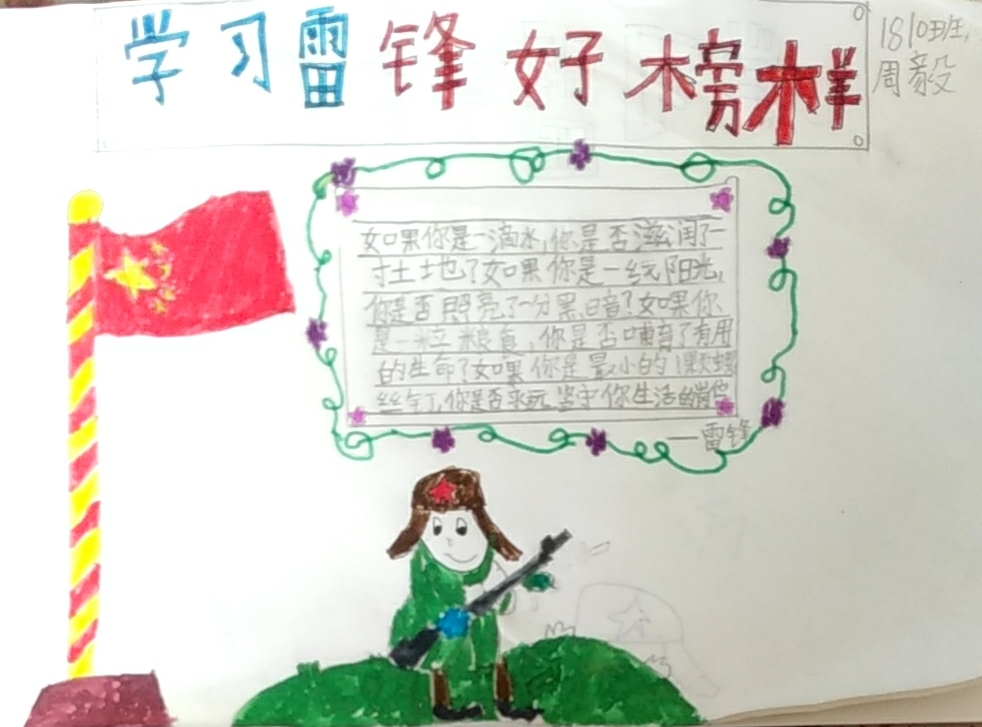 学习雷锋好榜样
1810班
周毅
如果你是一滴水,你是否滋润了一
寸土地?如果你是一线阳光,
你是否照亮了一分黑暗?如果你
是一粒粮食,你是否哺育了有用
的生命?如果你是最小的一颗螺
丝钉,你是否永远坚守你生活的岗位
—雷锋